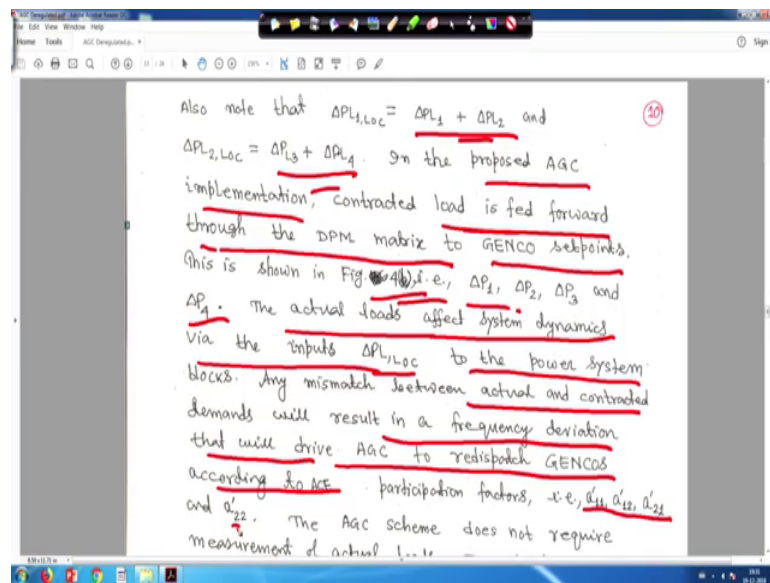 AGC Deregulated.pdf - Adobe Acrobat Reader DC
File Edit View Window Help
Home Tools AGC Deregulated.p... ×
Sign
Also note that ΔPL1,LOC = ΔPL1 + ΔPL2 and
10
ΔPL2,LOC = ΔPL3 + ΔPL4. In the proposed AGC
implementation, contracted load is fed forward
through the DPM matrix to GENCO setpoints.
This is shown in Fig. 4(b), i.e., ΔP1, ΔP2, ΔP3 and
ΔP4. The actual loads affect system dynamics
via the inputs ΔPL,LOC to the power system
blocks. Any mismatch between actual and contracted
demands will result in a frequency deviation
that will drive AGC to redispatch GENCOS
according to ACE participation factors, i.e., a'11, a'12, a'21
and a'22. The AGC scheme does not require
measurement of actual loads.